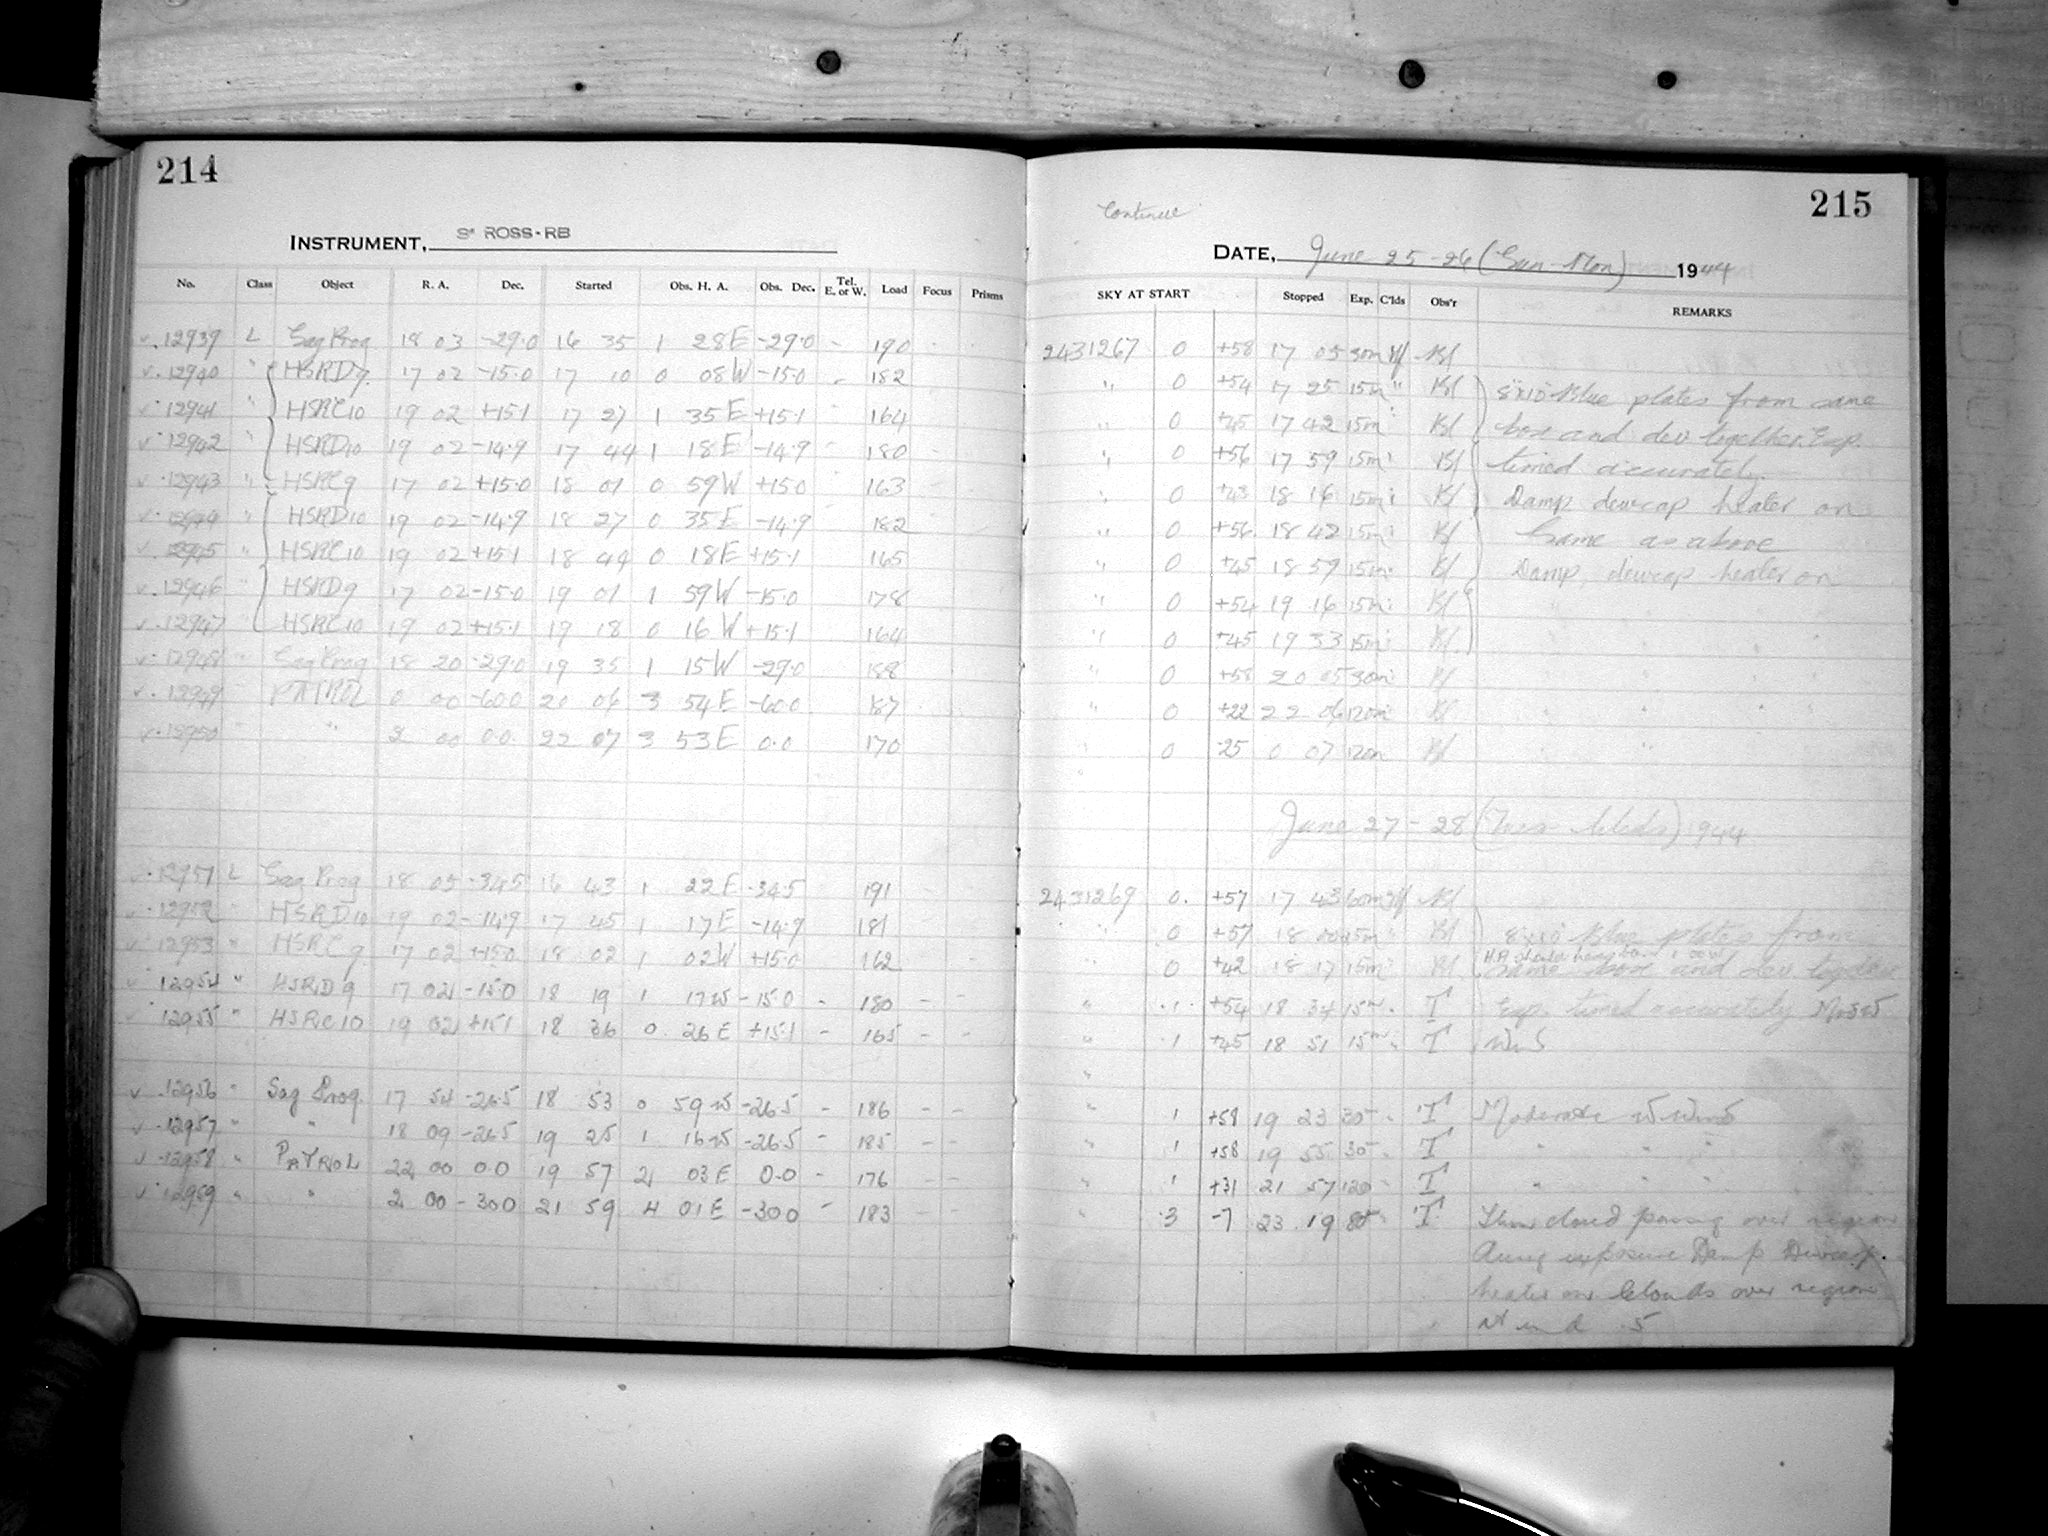 214
INSTRUMENT, 3" ROSS-RB
No. Class Object R. A. Dec. Started Obs. H. A. Obs. Dec. Tel. E. or W. Load Focus Prisms
12939 L Sag Prog 18 03 -29.0 16 35 1 28E -29.0 - 190
12940 " HSRD9 17 02 -15.0 17 10 0 08W -15.0 - 182
12941 " HSRC10 19 02 +15.1 17 27 1 35E +15.1 164
12942 " HSRD10 19 02 -14.9 17 44 1 18E -14.9 180
12943 " HSRC9 17 02 +15.0 18 01 0 59W +15.0 163
12944 " HSRD10 19 02 -14.9 18 27 0 35E -14.9 182
12945 " HSRC10 19 02 +15.1 18 44 0 18E +15.1 165
12946 " HSRD9 17 02 -15.0 19 01 1 59W -15.0 178
12947 " HSRC10 19 02 +15.1 19 18 0 16W +15.1 164
12948 " Sag Prog 18 20 -29.0 19 35 1 15W -29.0 188
12949 " PATROL 0 00 -60.0 20 06 3 54E -60.0 187
12950 " " 2 00 0.0 22 07 3 53E 0.0 170
12951 L Sag Prog 18 05 -34.5 16 43 1 22E -34.5 191
12952 " HSRD10 19 02 -14.9 17 45 1 17E -14.9 181
12953 " HSRC9 17 02 +15.0 18 02 1 02W +15.0 162
12954 " HSRD9 17 02 -15.0 18 19 1 17W -15.0 - 180 - -
12955 " HSRC10 19 02 +15.1 18 36 0 26E +15.1 - 165 - -
12956 " Sag Prog. 17 54 -26.5 18 53 0 59W -26.5 - 186 - -
12957 " " 18 09 -26.5 19 25 1 16W -26.5 - 185 - -
12958 " PATROL 22 00 0.0 19 57 2 03E 0.0 - 176 - -
12959 " " 2 00 -30.0 21 59 4 01E -30.0 - 183 - -
215
Continue
DATE, June 25-26 (Sun-Mon) 1944
SKY AT START Stopped Exp. C'lds Obs'r REMARKS
2431267 0 +58 17 05 30m Bl
" 0 +54 17 25 15m " Bl 8x10 Blue plates from same
" 0 +45 17 42 15m " Bl box and dev together. Exp.
" 0 +56 17 59 15m " Bl timed accurately.
" 0 +43 18 16 15m " Bl Damp dewcap heater on
" 0 +56 18 42 15m " Bl Same as above
" 0 +45 18 59 15m " Bl Damp, dewcap heater on
" 0 +54 19 16 15m " Bl
" 0 +45 19 33 15m " Bl
" 0 +58 20 05 30m " Bl
" 0 +22 22 06 120m " Bl " " " "
" 0 -25 0 07 120m Bl " "
June 27-28 (Tues Weds) 1944
2431269 0 +57 17 43 60m Bl
" 0 +57 18 00 15m " Bl 8x10 Blue plates from
" 0 +42 18 17 15m " Bl same box and dev together
" 1 +54 18 34 15m " T Exp. timed accurately Mod W
" 1 +45 18 51 15m " T Wind
"
" 1 +58 19 23 30m " T Moderate W Wind
" 1 +58 19 55 30 " T " "
" 1 +31 21 57 120 " T " " "
" 3 -7 23 19 80 " T Thin cloud passing over region
during exposure Damp Dewcap
heater on Clouds over region
at end .5